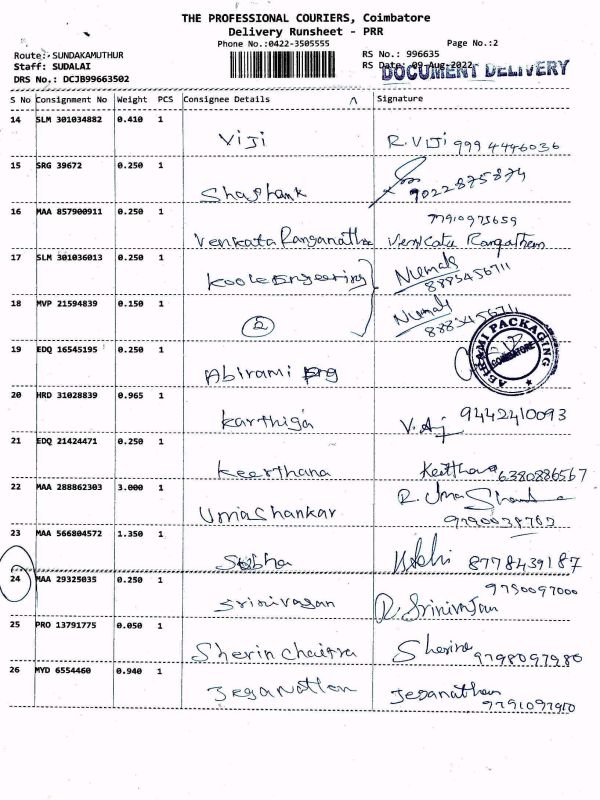 THE PROFESSIONAL COURIERS, Coimbatore
Delivery Runsheet - PRR
Phone No.:0422-3505555
Page No.:2
Route:- SUNDAKAMUTHUR
RS No.: 996635
Staff: SUDALAI
RS Date: 09-Aug-2022
DOCUMENT DELIVERY
DRS No.: DCJB99663502
S No Consignment No Weight PCS Consignee Details Signature
14 SLM 301034882 0.410 1 Viji R. VIJI 9994446036
15 SRG 39672 0.250 1 Shashank 9022875874
16 MAA 857900911 0.250 1 Venkata Ranganatha Venkata 77910975659
17 SLM 301036013 0.250 1 8883456711
18 MVP 21594839 0.150 1 2
19 EDQ 16545195 0.250 1 Abirami ABIRAMI PACKAGING COIMBATORE
20 HRD 31028839 0.965 1 Karthiga 9442410093
21 EDQ 21424471 0.250 1 Keerthana 6380886567
22 MAA 288862303 3.000 1 Umashankar R. Uma
23 MAA 566804572 1.350 1 Sobha 8778439187
24 MAA 29325035 0.250 1 Srinivasan 9750097000
25 PRO 13791775 0.050 1 Sherin 9798097980
26 MYD 6554460 0.940 1 Jeganathan Jeganathan 9791097910